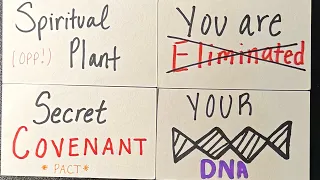 Spiritual
(OPP!) Plant
You are
Eliminated
Secret
COVENANT
*PACT*
YOUR
DNA